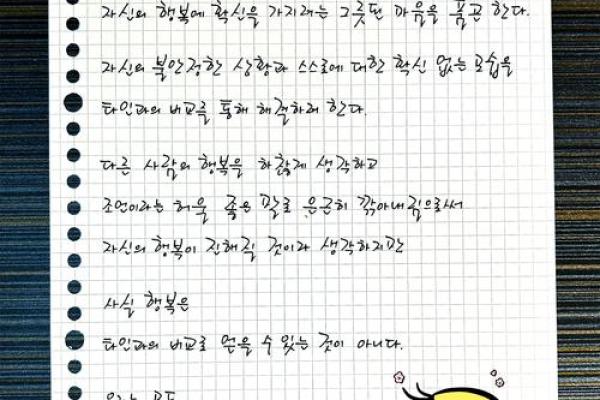 자신의 행복에 확신을 가지려는 그릇된 마음을 품곤 한다.
자신의 불안정한 상황과 스스로에 대한 확신 없는 모습을
타인과의 비교를 통해 해결하려 한다.
다른 사람의 행복을 하찮게 생각하고
조언이라는 허울 좋은 말로 은근히 깎아내림으로써
자신의 행복이 진해질 것이라 생각하지만
사실 행복은
타인과의 비교로 얻을 수 있는 것이 아니다.